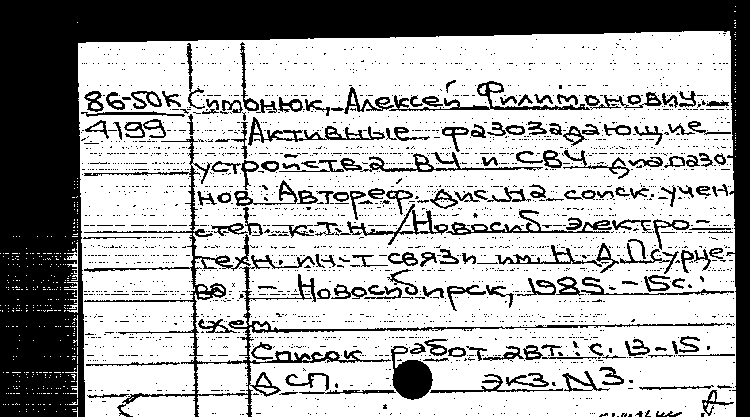 86-50к Симонюк, Алексей Филимонович.
4199 Активные фазозадающие
устройства ВЧ и СВЧ диапазо-
нов : Автореф. дис. на соиск. учен.
степ. к.т.н. / Новосиб. электро-
техн. ин-т связи им. Н. Д. Псурце-
ва. - Новосибирск, 1985. - 15с. :
схем.
Список работ авт.: с. 13-15.
ДСП. экз. N3.